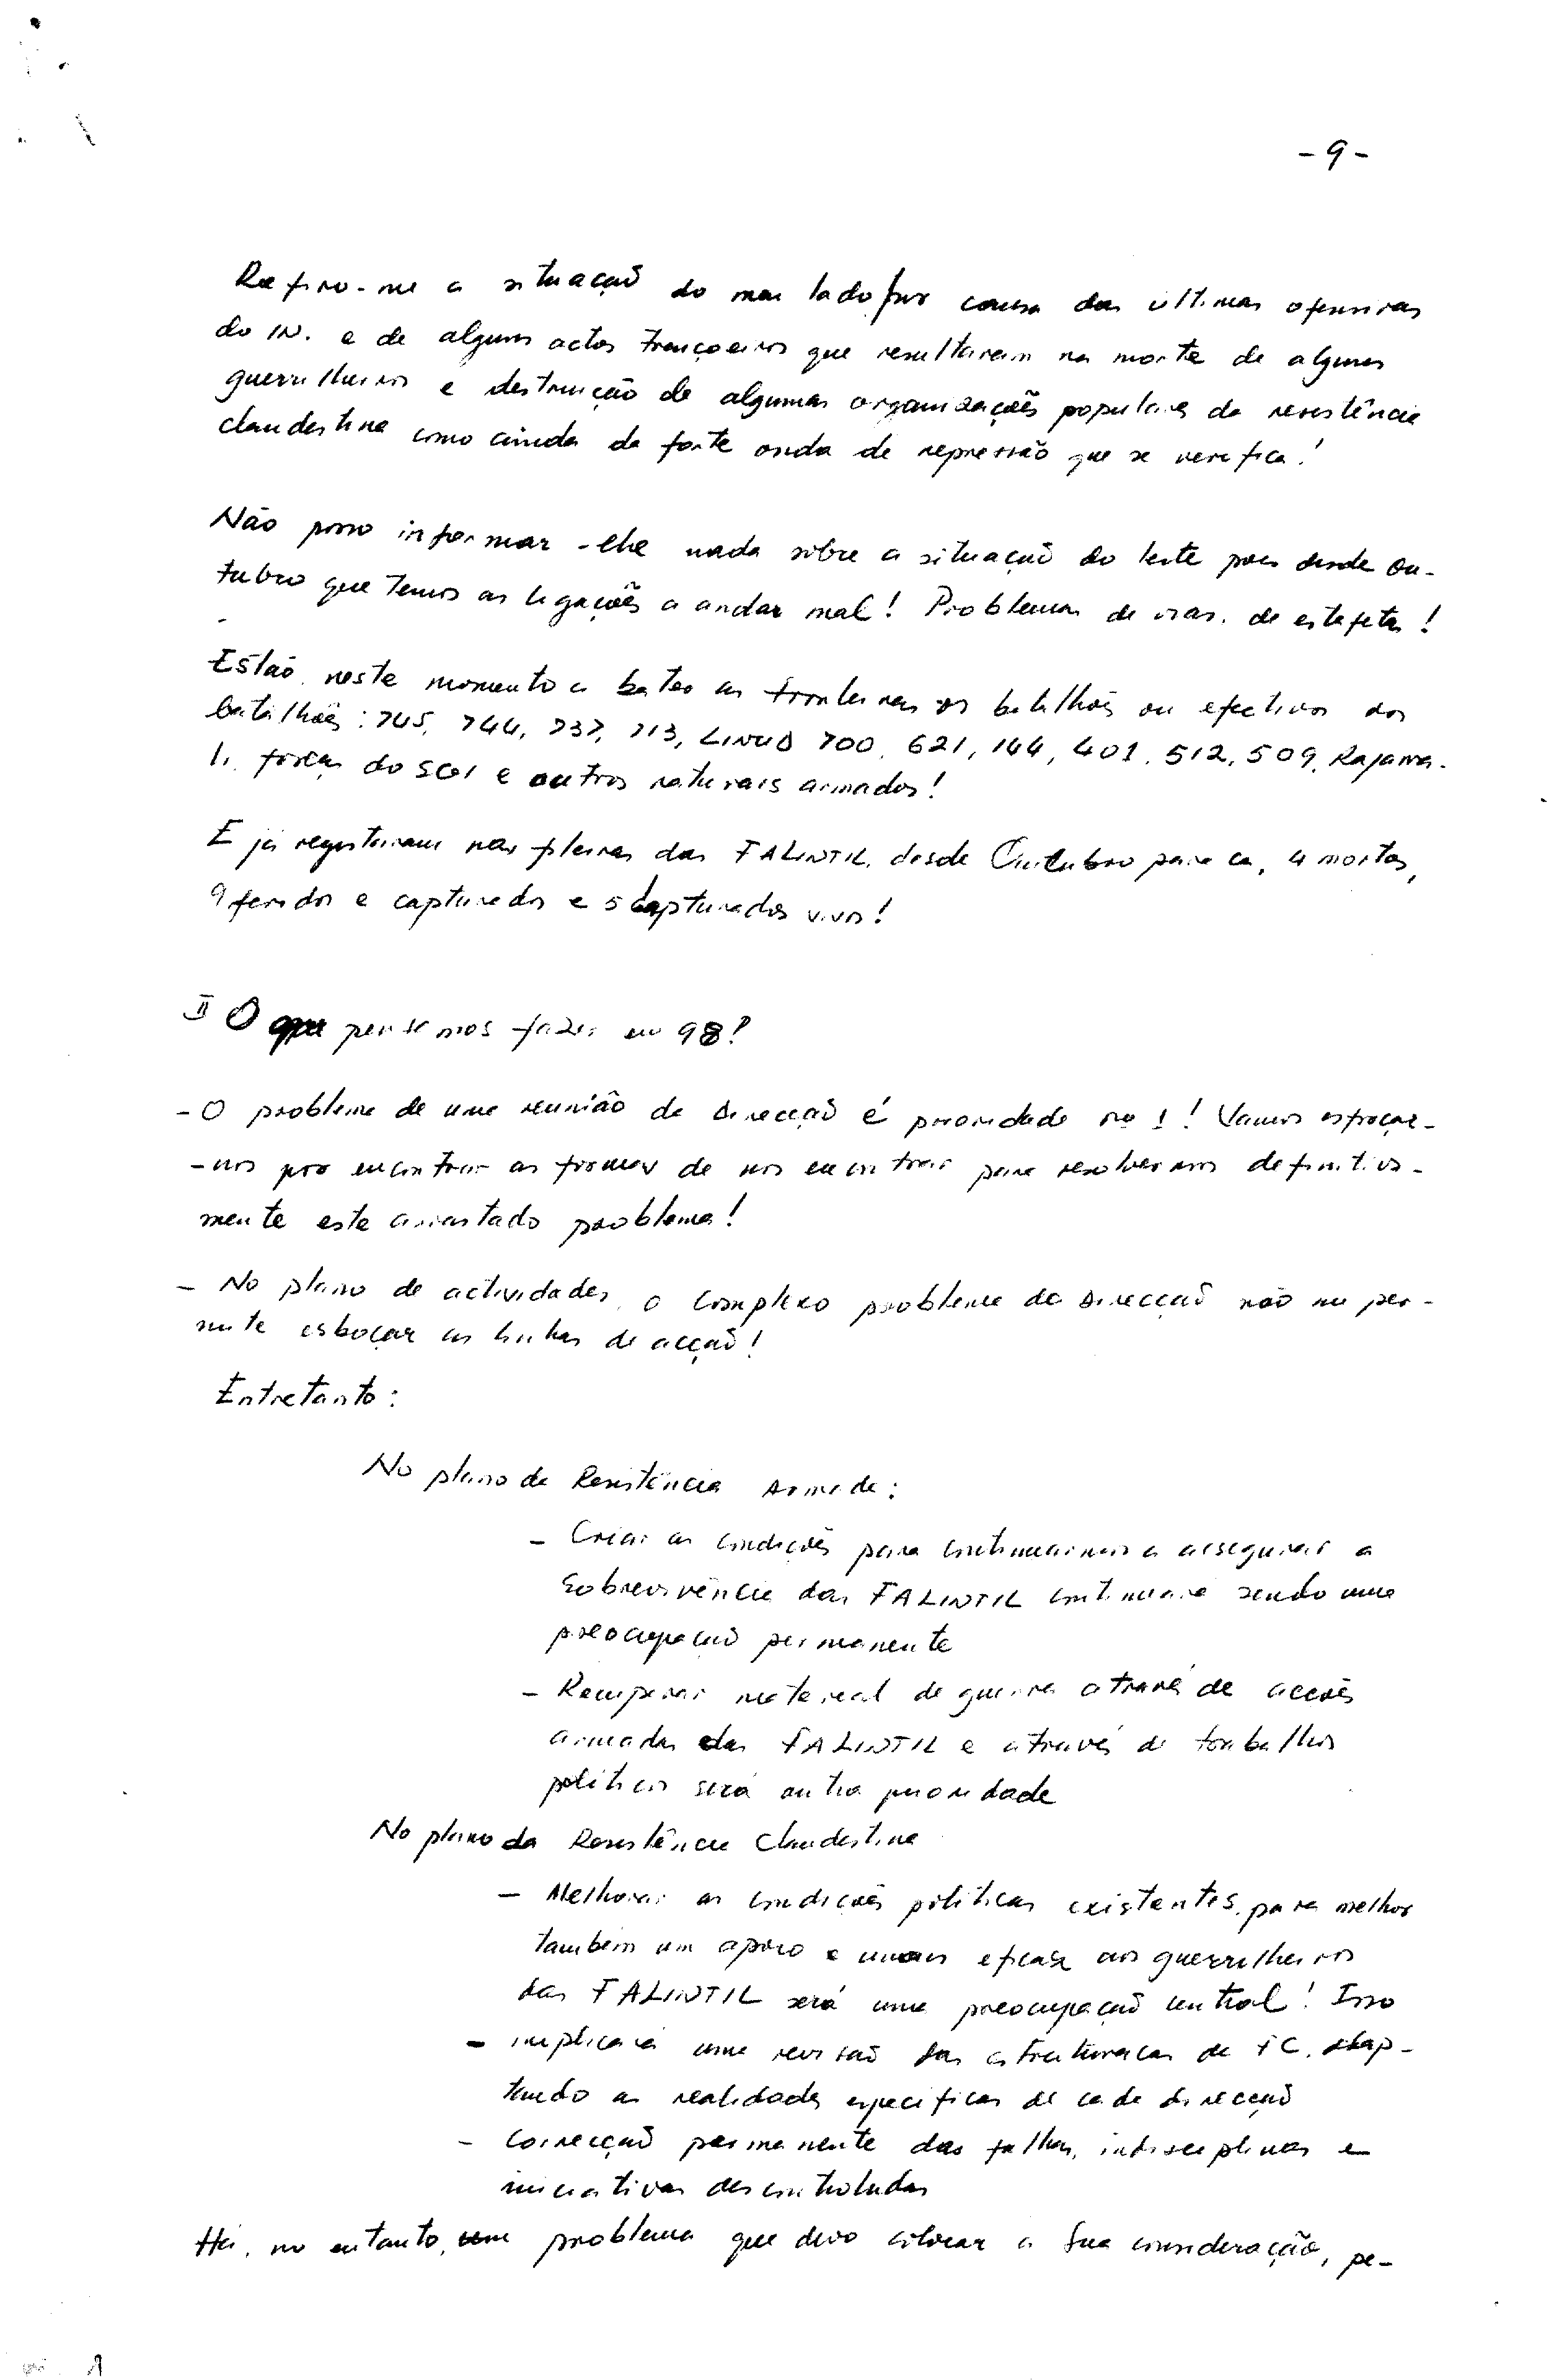 - 9 -
Refiro-me a situação do meu lado por causa das últimas ofensivas
do IN. e de alguns actos traiçoeiros que resultaram na morte de alguns
guerrilheiros e destruição de algumas organizações populares da resistência
clandestina como ainda da forte onda de repressão que se verifica!
Não posso informar-lhe nada sobre a situação do leste pois desde Ou-
tubro que temos as ligações a andar mal! Problemas de vias, de estafetas!
Estão, neste momento a bater as fronteiras os batalhões ou efectivos dos
batalhões: 745, 744, 737, 713, LINUD 700, 621, 144, 401, 512, 509, Rajawa-
li, forças do SGI e outros naturais armados!
E já registaram nas fileiras das FALINTIL, desde Outubro para cá, 4 mortos,
9 feridos e capturados e 5 capturados vivos!
II O que pensamos fazer em 98?
- O problema de uma reunião da Direcção é prioridade no 1! Vamos esforçar-
-nos por encontrar as formas de nos encontrar para resolvermos definitiva-
mente este arrastado problema!
- No plano de actividades, o complexo problema da Direcção não me per-
mite esboçar as linhas de acção!
Entretanto:
No plano da Resistência Armada:
- Criar as condições para continuarmos a assegurar a
sobrevivência das FALINTIL continuará sendo uma
preocupação permanente
- Recuperar material de guerra através de acções
armadas das FALINTIL e através de trabalhos
políticos será outra prioridade
No plano da Resistência Clandestina
- Melhorar as condições políticas existentes, para melhor
também um apoio e mais eficaz aos guerrilheiros
das FALINTIL será uma preocupação central! Isso
- implicará uma revisão das estruturas da FC, adap-
tando as realidades específicas de cada direcção
- Correcção permanente das falhas, indisciplinas e
iniciativas descontroladas
Há, no entanto, um problema que devo colocar a Sua consideração, pe-